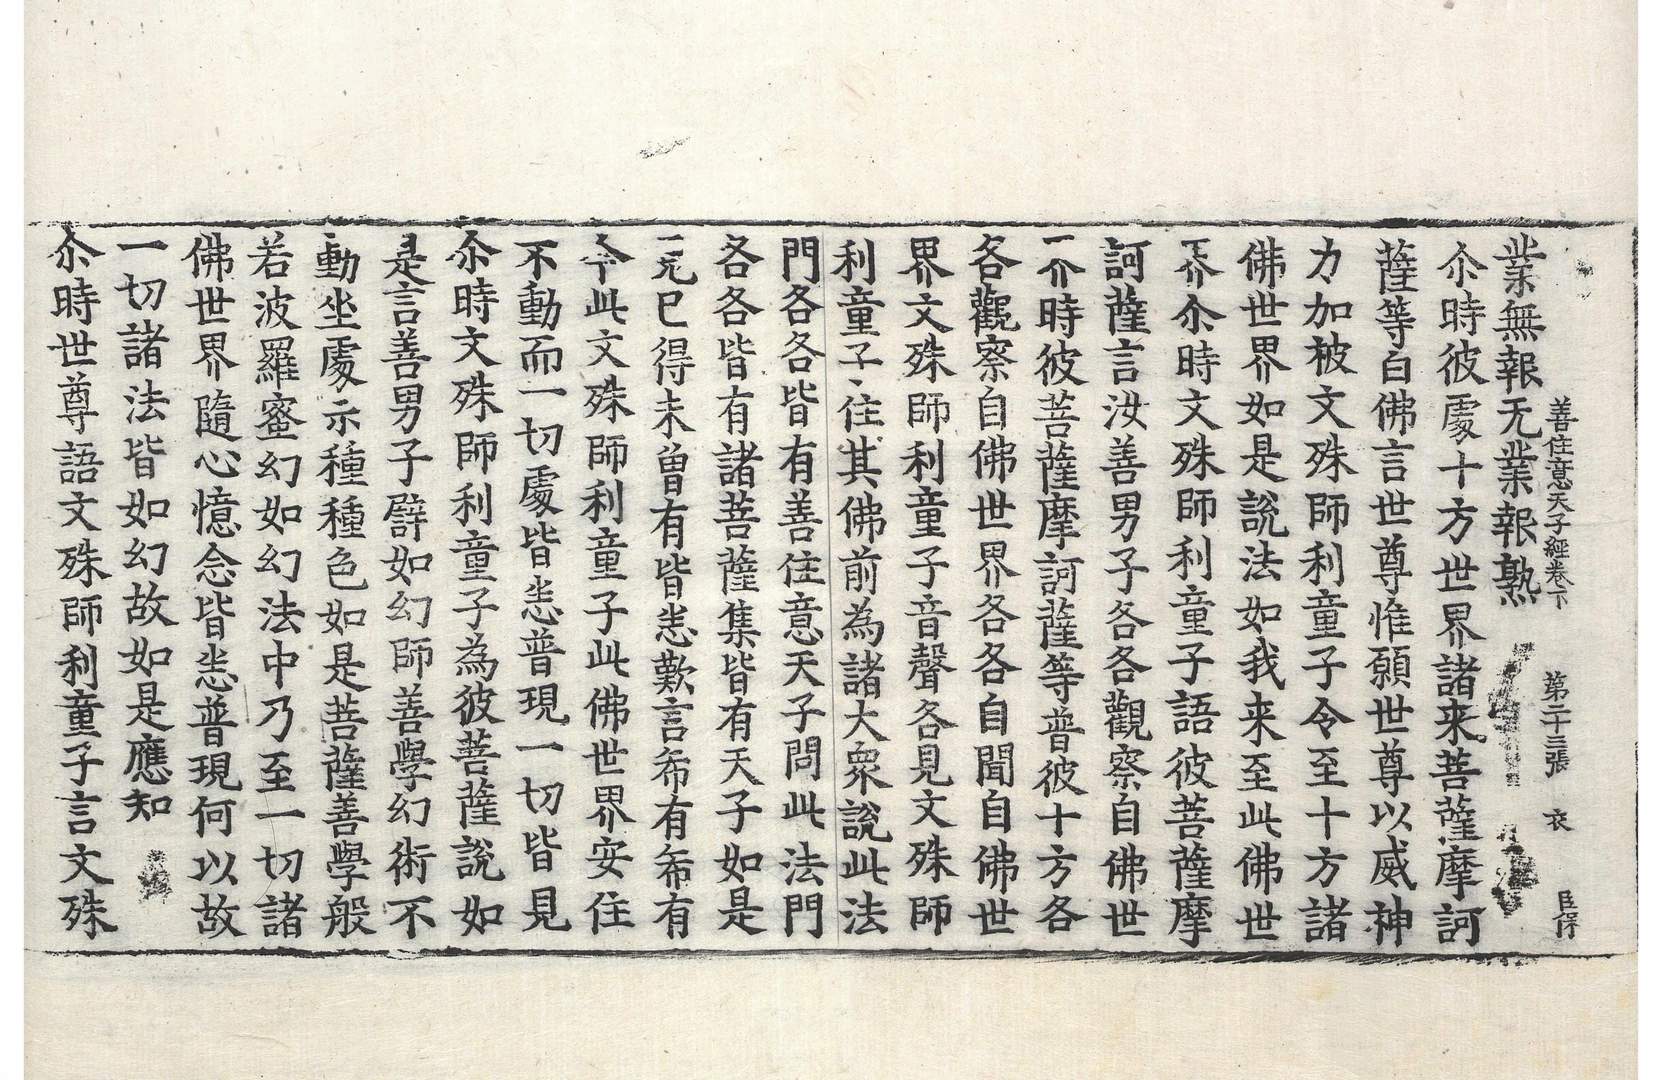 善住意天子經卷下 第二十三張 衣 臣保
業無報无業報熟
尒時彼處十方世界諸来菩薩摩訶
薩等白佛言世尊惟願世尊以威神
力加被文殊師利童子令至十方諸
佛世界如是說法如我来至此佛世
界尒時文殊師利童子語彼菩薩摩
訶薩言汝善男子各各觀察自佛世
時彼菩薩摩訶薩等普彼十方各
各觀察自佛世界各各自聞自佛世
界文殊師利童子音聲各見文殊師
利童子往其佛前為諸大衆說此法
門各各皆有善住意天子問此法門
各各皆有諸菩薩集皆有天子如是
巳得未曾有皆悉歎言希有希有
今此文殊師利童子此佛世界安住
不動而一切處皆悉普現一切皆見
尒時文殊師利童子為彼菩薩說如
是言善男子譬如幻師善學幻術不
動坐處示種種色如是菩薩善學般
若波羅蜜幻如幻法中乃至一切諸
佛世界隨心憶念皆悉普現何以故
一切諸法皆如幻故如是應知
尒時世尊語文殊師利童子言文殊